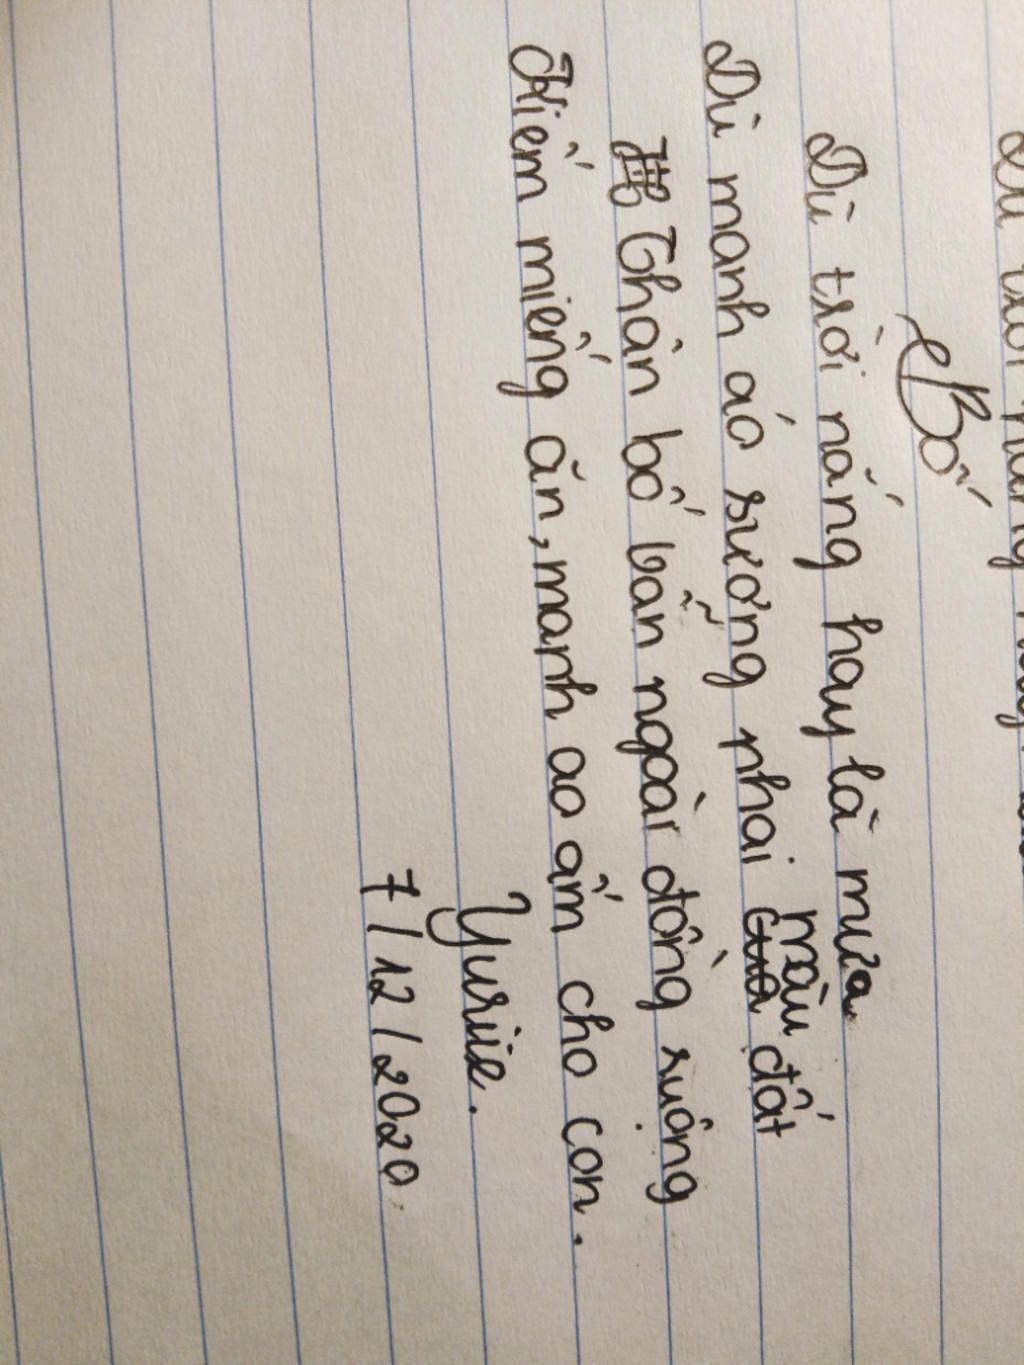 Bố
Dù trời nắng hay là mưa
Dù manh áo sương phai màu đất
Thân bố vẫn ngoài đồng ruộng
Kiếm miếng ăn, manh ao ấm cho con.
Yuriie.
7/12/2020